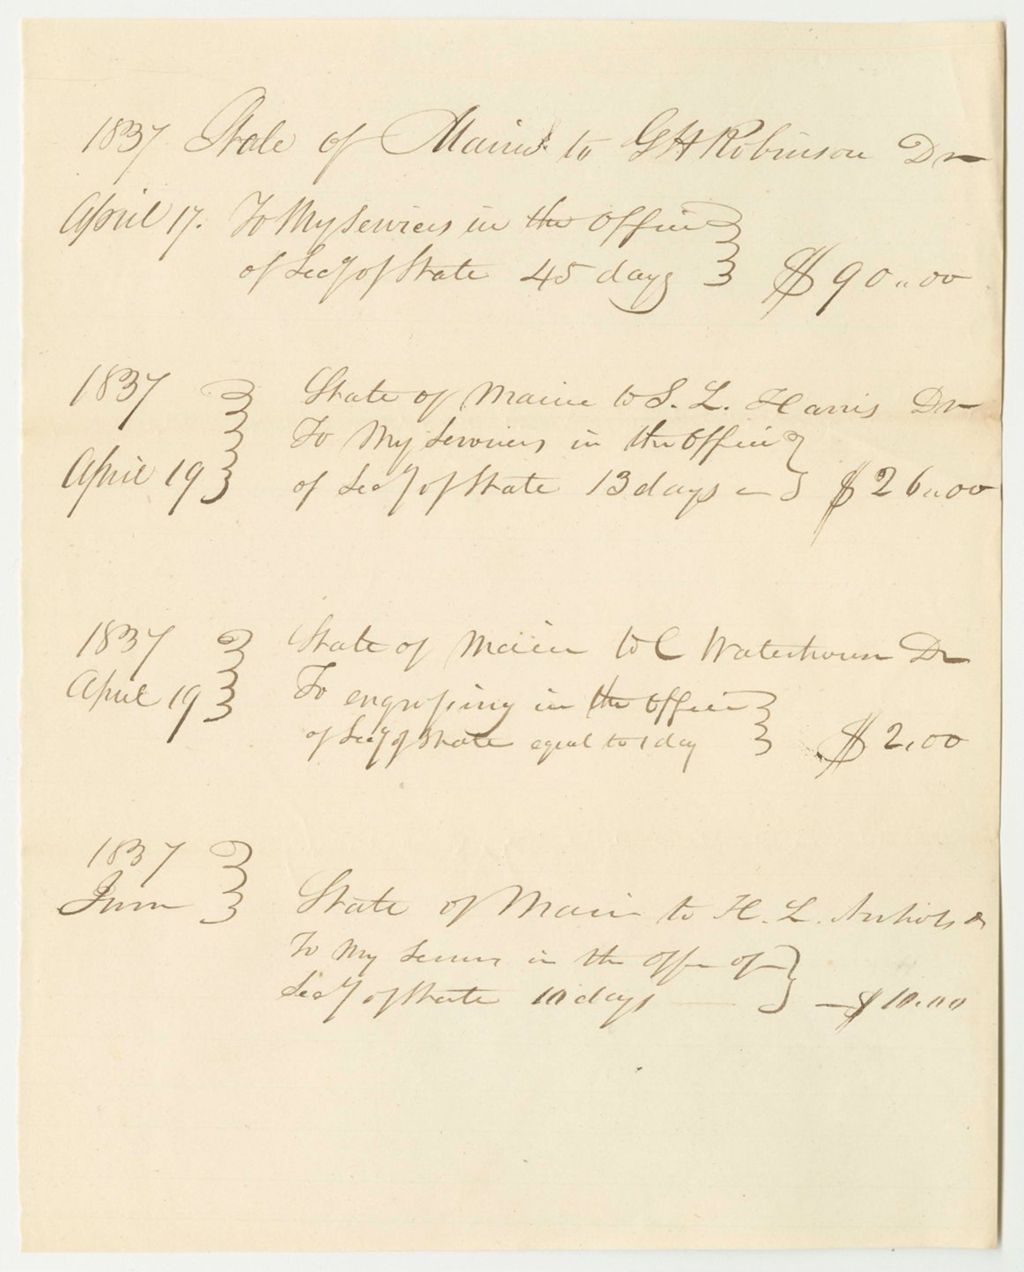 1837 State of Maine to G H Robinson Dr
April 17. To My Services in the Office
of Secy of State 45 days $90..00
1837 State of Maine to S. L. Harris Dr
To My Services in the Office
April 19 of Secy of State 13 days $26..00
1837 State of Maine to C Waterhouse Dr
April 19 To engrossing in the Office
of Secy of State equal to 1 day $2.00
1837
June State of Maine to H. L. Nichols Dr
To My Services in the Office of
Secy of State 10 days — — $10.00